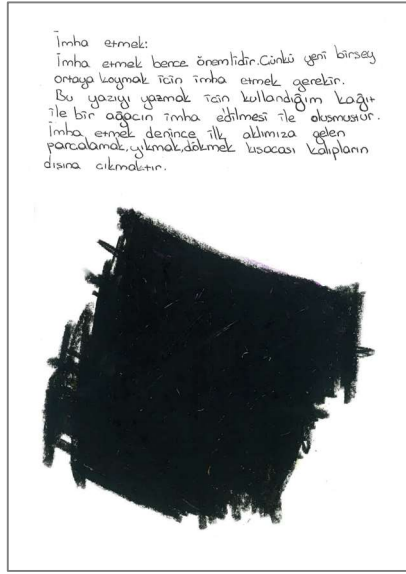 İmha etmek:
İmha etmek bence önemlidir.Cünkü yeni birsey
ortaya koymak icin imha etmek gerekir.
Bu yazıyı yazmak icin kullandığım kağıt
ile bir ağacın imha edilmesi ile olusmustur.
İmha etmek denince ilk aklımıza gelen
parcalamak,yıkmak,dökmek kısacası kalıpların
dısına cıkmaktır.